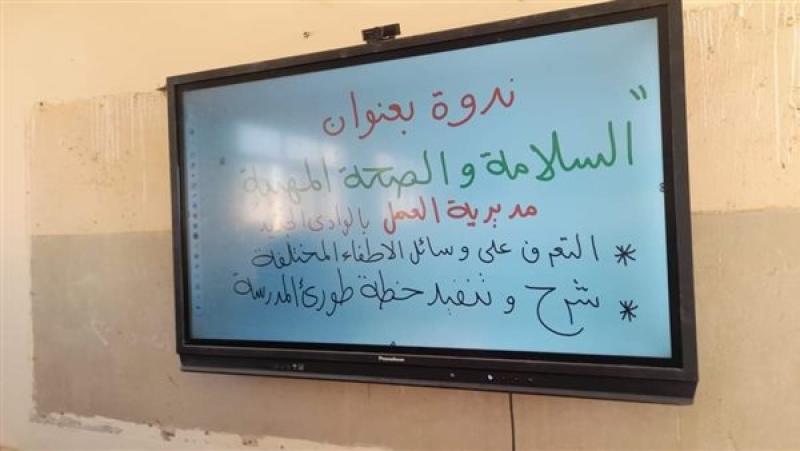 ندوة بعنوان
"السلامة والصحة المهنية
مديرية العمل بالوادى الجديد
* التعرف على وسائل الاطفاء المختلفة
* شرح و تنفيذ خطة طورئ المدرسة
Promethean